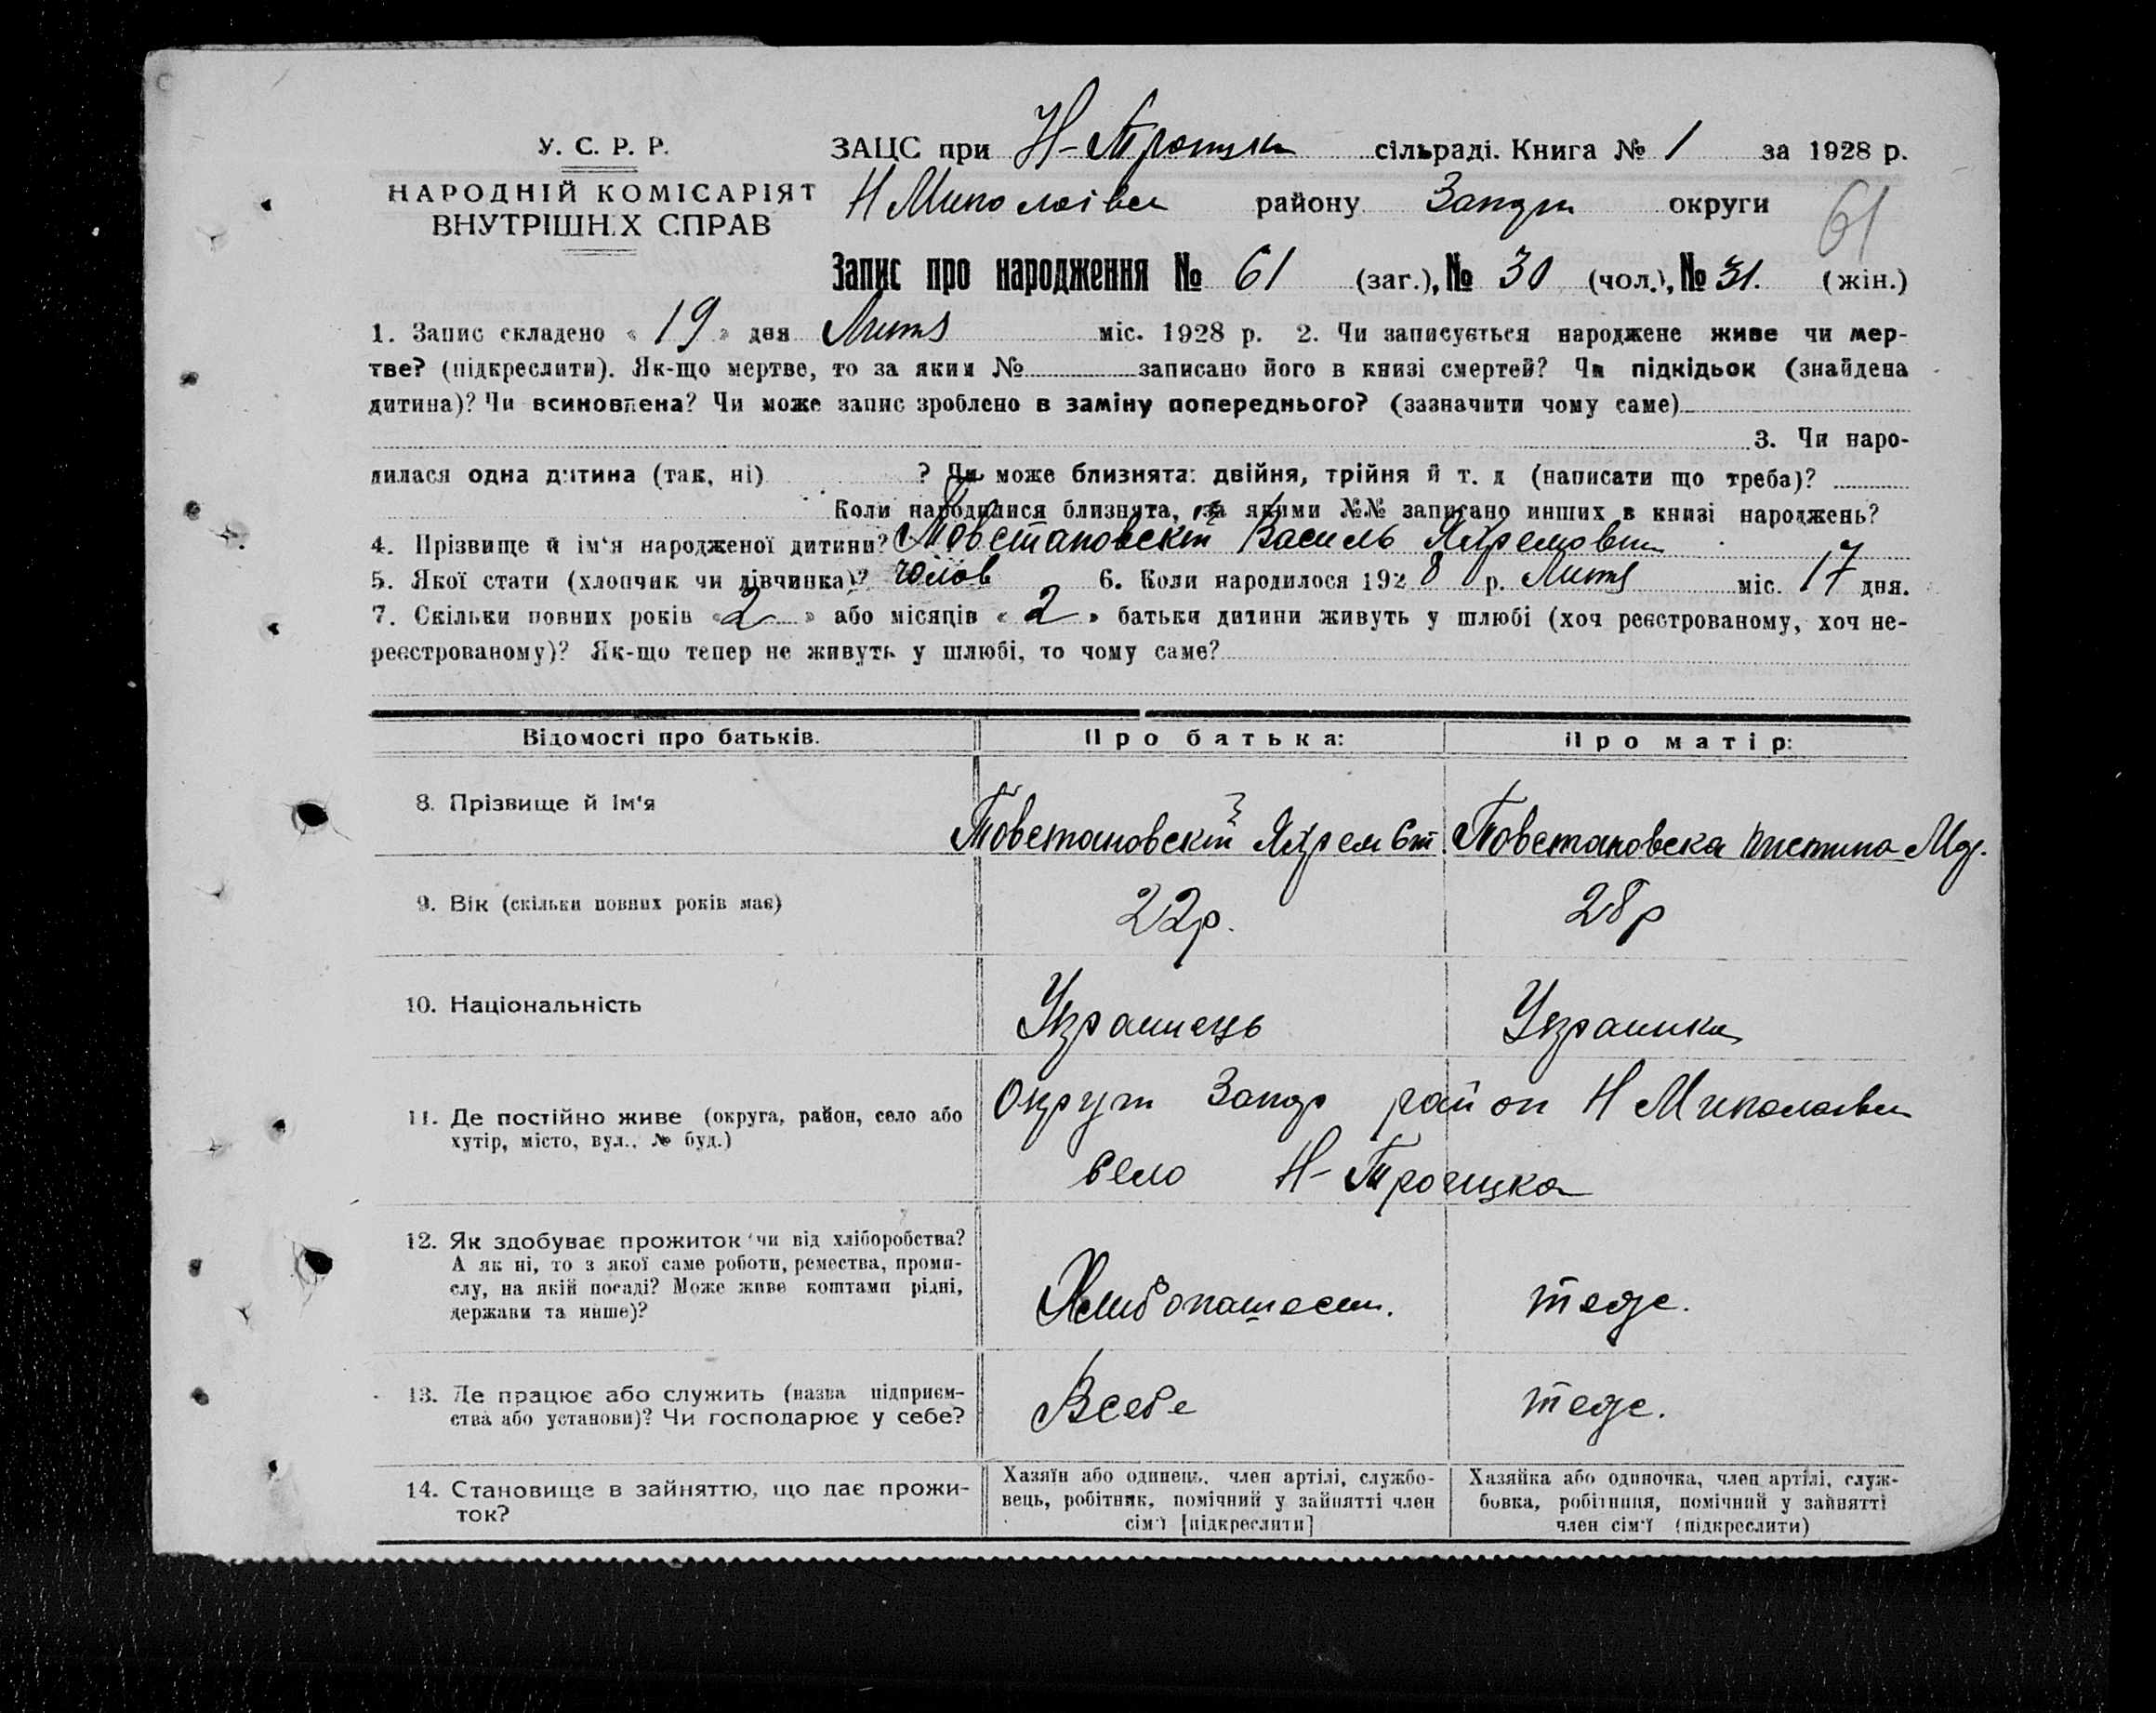 У. С. Р. Р.
НАРОДНІЙ КОМІСАРІЯТ
ВНУТРІШНІХ СПРАВ
ЗАЦС при Н-Троицьк сільраді. Книга № 1 за 1928 р.
Н Миколаівск району Запор округи
61
Запис про народження № 61 (заг.), № 30 (чол.), № 31. (жін.)
1. Запис складено « 19 » дня Лют міс. 1928 р. 2. Чи записується народжене живе чи мер-
тве? (підкреслити). Як-що мертве, то за яким № записано його в книзі смертей? Чи підкідьок (знайдена
дитина)? Чи всиновлена? Чи може запис зроблено в заміну попереднього? (зазначити чому саме)
3. Чи наро-
дилася одна дитина (так, ні) ? Чи може близнята: двійня, трійня й т. д (написати що треба)?
Коли народилися близнята, за якими №№ записано инших в книзі народжень?
4. Прізвище й ім'я народженої дитини? Товстановский Василь
5. Якої стати (хлопчик чи дівчинка)? чолов 6. Коли народилося 1928 р. Лют міс. 17 дня.
7. Скільки повних років « 2 » або місяців « 2 » батьки дитини живуть у шлюбі (хоч реєстрованому, хоч не-
реєстрованому)? Як-що тепер не живуть у шлюбі, то чому саме?
Відомості про батьків. Про батька: Про матір:
8. Прізвище й ім'я Товстановский Товстановска
9. Вік (скільки повних років має) 22р. 28р
10. Національність Украинець Украинка
11. Де постійно живе (округа, район, село або
хутір, місто, вул., № буд.)
Округ Запор район Н Миколаівск
село Н-Троицка
12. Як здобуває прожиток чи від хліборобства?
А як ні, то з якої саме роботи, ремества, проми-
слу, на якій посаді? Може живе коштами рідні,
держави та инше)?
теж.
13. Де працює або служить (назва підприєм-
ства або установи)? Чи господарює у себе?
Всебе теж.
14. Становище в зайняттю, що дає прожи-
ток?
Хазяїн або одинець, член артілі, службо-
вець, робітник, помічний у зайнятті член
сім'ї [підкреслити]
Хазяйка або одиночка, член артілі, служ-
бовка, робітниця, помічний у зайнятті
член сім'ї (підкреслити)